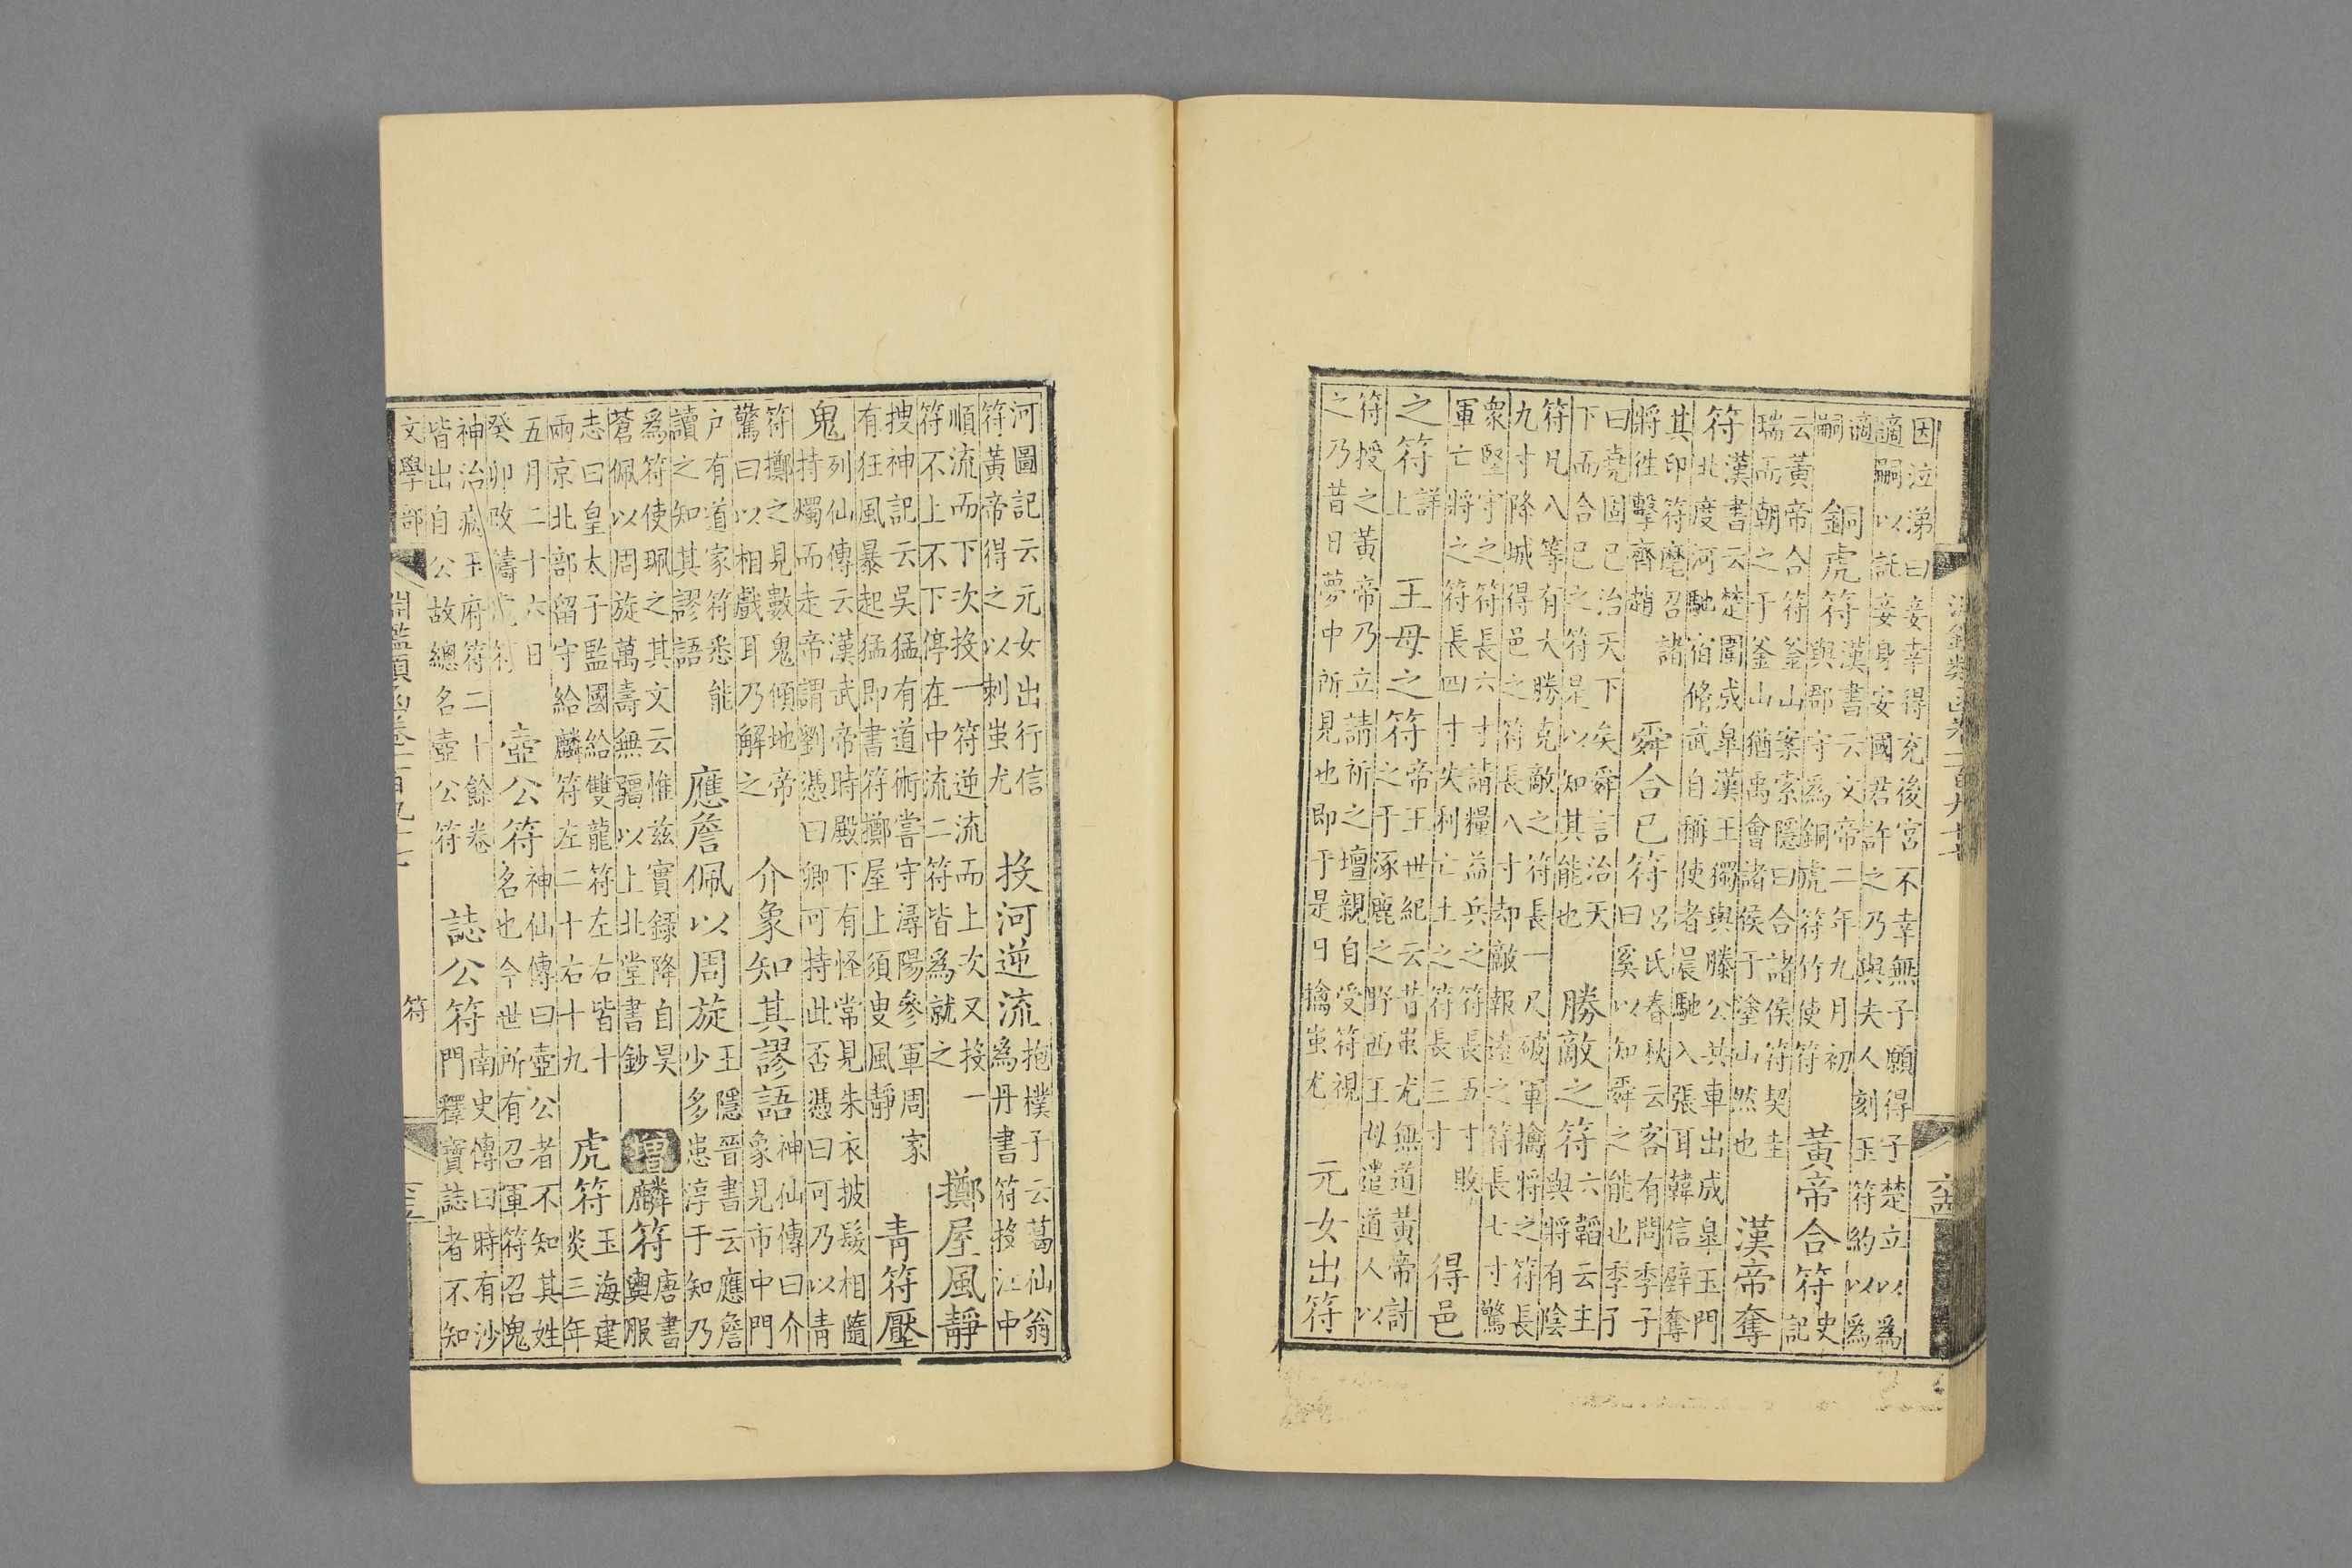 因泣涕曰妾幸得充後宮不幸無子願得子楚立以為
適嗣以託妾身安國君許之乃與夫人刻玉符約以為
適嗣
銅虎符
漢書云文帝二年九月初
與郡守為銅虎符竹使符
黃帝合符
史記
云黃帝合符釜山案索隱曰合諸侯符契圭
瑞而朝之于釜山猶禹會諸侯于塗山然也
漢帝奪
符
漢書云楚圍成皋漢王獨與滕公共車出成皋玉門
北度河馳宿脩武自稱使者晨馳入張耳韓信壁奪
其印符麾召諸
將徃擊齊趙
舜合已符
呂氏春秋云客有問季子
曰奚以知舜之能也季子
曰堯固已治天下矣舜言治天
下而合已之符是以知其能也
勝敵之符
六韜云主
與將有陰
符凡八等有大勝克敵之符長一尺破軍擒將之符長
九寸降城得邑之符長八寸却敵報遠之符長七寸驚
衆堅守之符長六寸請糧益兵之符長五寸敗
軍亡將之符長四寸失利亡士之符長三寸
得邑
之符
詳上
王母之符
帝王世紀云昔蚩尤無道黃帝討
之于涿鹿之野西王母遣道人以
符授之黃帝乃立請祈之壇親自受符視
之乃昔日夢中所見也即于是日擒蚩尤
元女出符
河圖記云元女出行信
符黃帝得之以刺蚩尤
投河逆流
抱樸子云葛仙翁
為丹書符投江中
順流而下次投一符逆流而上次又投一
符不上不下停在中流二符皆為就之
擲屋風靜
搜神記云吳猛有道術嘗守潯陽參軍周家
有狂風暴起猛即書符擲屋上須臾風靜
青符壓
鬼
列仙傳云漢武帝時殿下有怪常見朱衣披髮相隨
持燭而走帝謂劉憑曰卿可持此否憑曰可乃以青
符擲之見數鬼傾地帝
驚曰以相戲耳乃解之
介象知其謬語
神仙傳曰介
象見市中門
户有道家符悉能
讀之知其謬語
應詹佩以周旋
王隱晉書云應詹
少多患淳于知乃
為符使珮之其文云惟茲實錄降自昊
蒼佩以周旋萬壽無疆以上北堂書鈔
增
麟符
唐書
輿服
志曰皇太子監國給雙龍符左右皆十
兩京北部留守給麟符左二十右十九
虎符
玉海建
炎三年
五月二十六日
癸卯改鑄虎符
壺公符
神仙傳曰壺公者不知其姓
名也今世所有召軍符召鬼
神治病玉府符二十餘卷
皆出自公故總名壺公符
誌公符
南史傳曰時有沙
門釋寶誌者不知
文學部
符